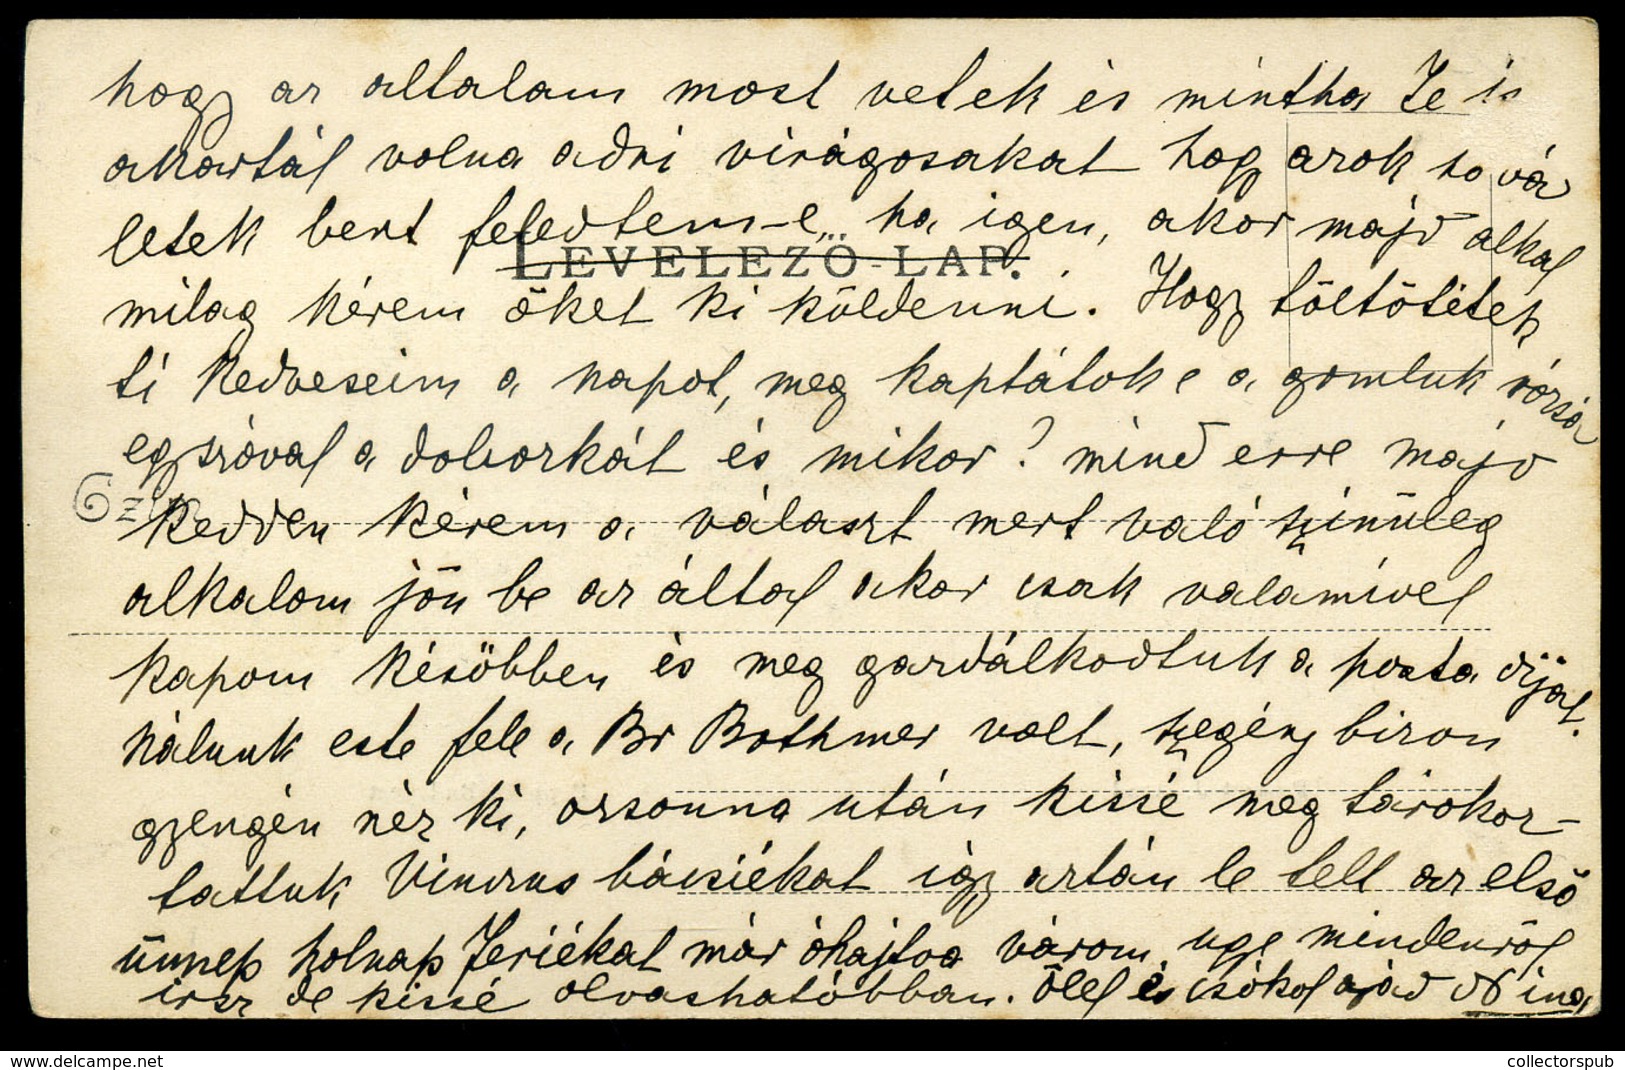 hogy az altalam most vetek és mintha Te is
akartál volna adni virágosakat hogy azok to vá
letek bent feledtem-e, ha igen, akor majd alkal
LEVELEZŐ-LAP.
milag kérem őket ki küldenni. Hogy töltötétek
ti Kedveseim a napot, meg kaptátok e a gomluk rózsá
egszóval a doborkát és mikor? mind erre majd
Kedden kérem a választ mert való szinüleg
alkalom jön be az által akor csak valamivel
kapom késöbben és meg gazdálkodtuk a posta dijat.
Nálunk este fele a Br Bothmer volt, szegény biron
gyengén néz ki, ozsonna után kissé meg tárokoz-
tattuk Vinczus bácsiékat így aztán le tellt az első
ünnep holnap Feriékat már óhajtva várom, uge mindenröl
irsz de kissé olvashatóbban. Ölel és csókol a,ád Nina